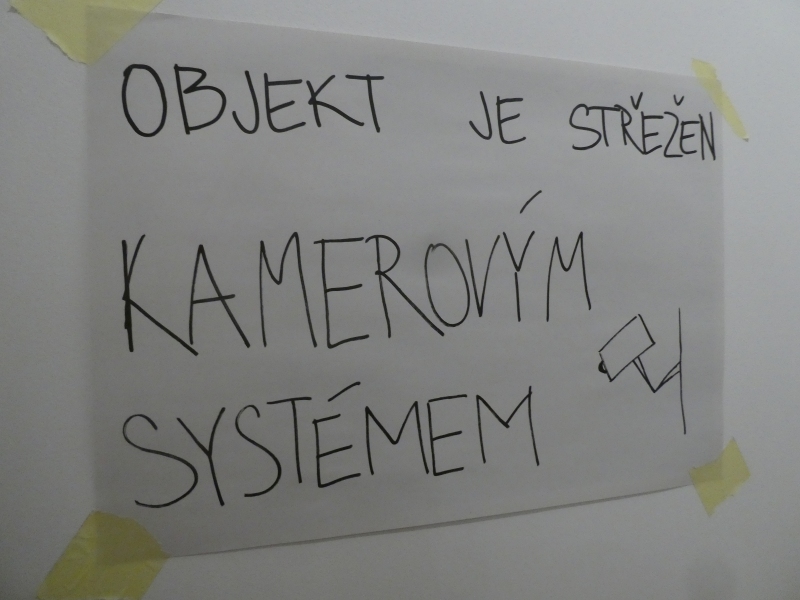 OBJEKT JE STŘEŽEN
KAMEROVÝM
SYSTÉMEM